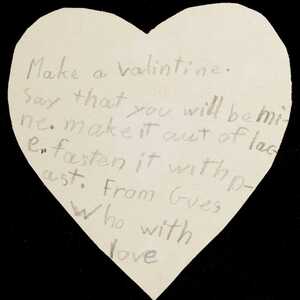 Make a valintine.
Say that you will be mi-
ne. make it out of lac-
e. fasten it with p-
ast. From Gues
Who with
love